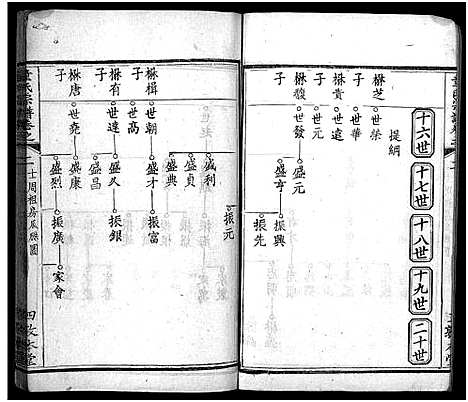 十六世
十七世
十八世
十九世
二十世
提綱
楙芝
世榮
子
楙貴
世華
世遠
子
楙馥
世元
世發
子
盛元
盛方
振興
振先
楙楫
世朝
子
世高
楙有
世達
子
楙唐
世堯
子
盛利
盛貞
盛典
盛才
盛久
盛昌
盛康
盛烈
振元
振富
振銀
振廣
家會
童氏宗譜卷之
二
士周祖房瓜瓞圖
四教堂